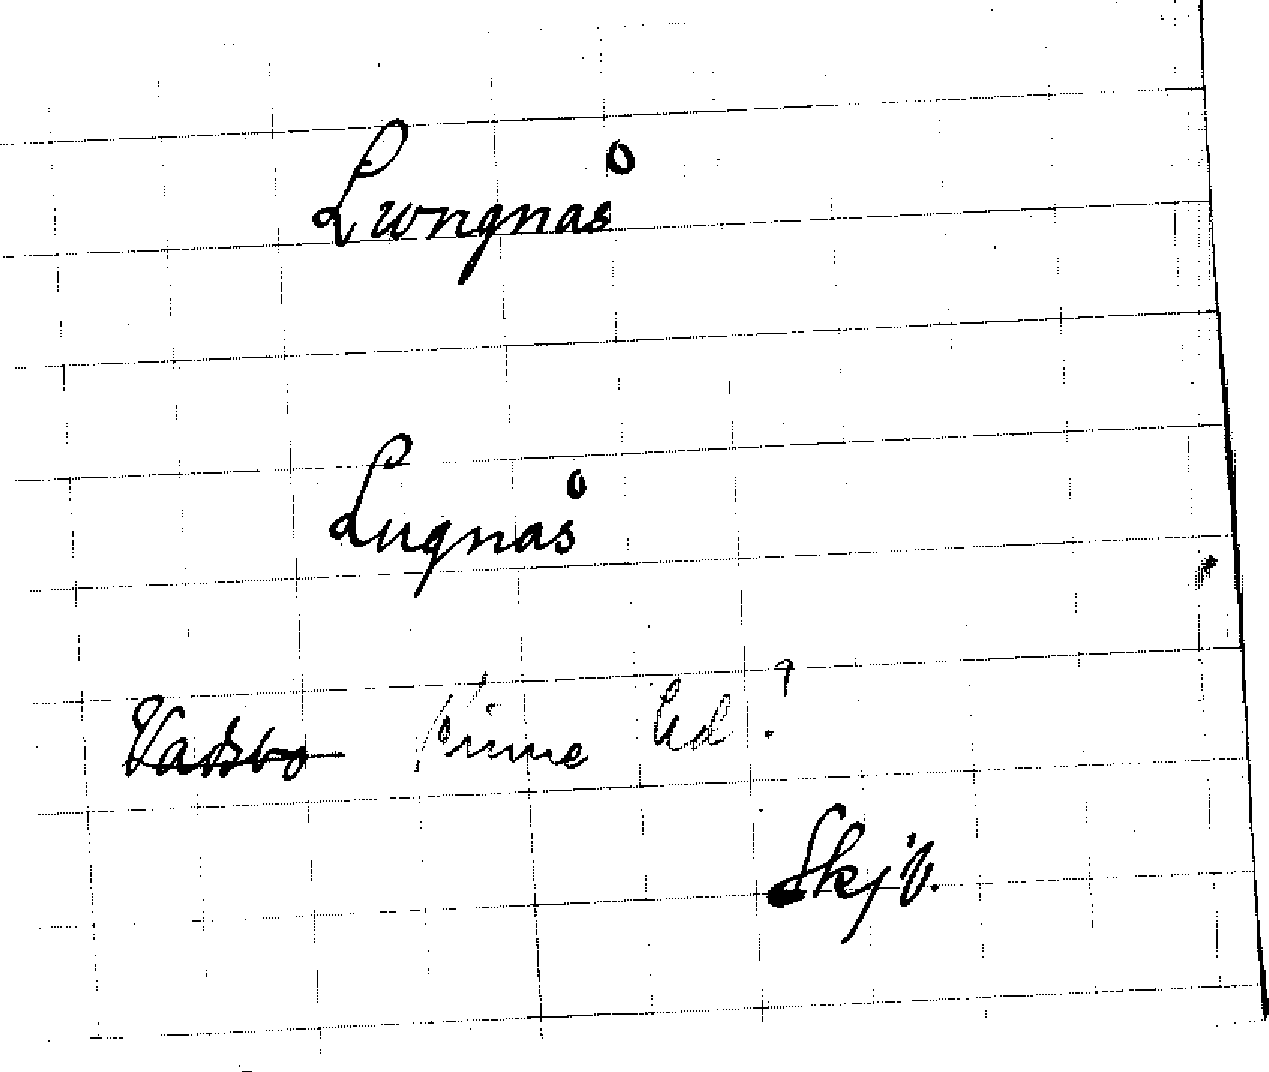 Lwngnås
Lugnås
Vadsbo Kinne hd?